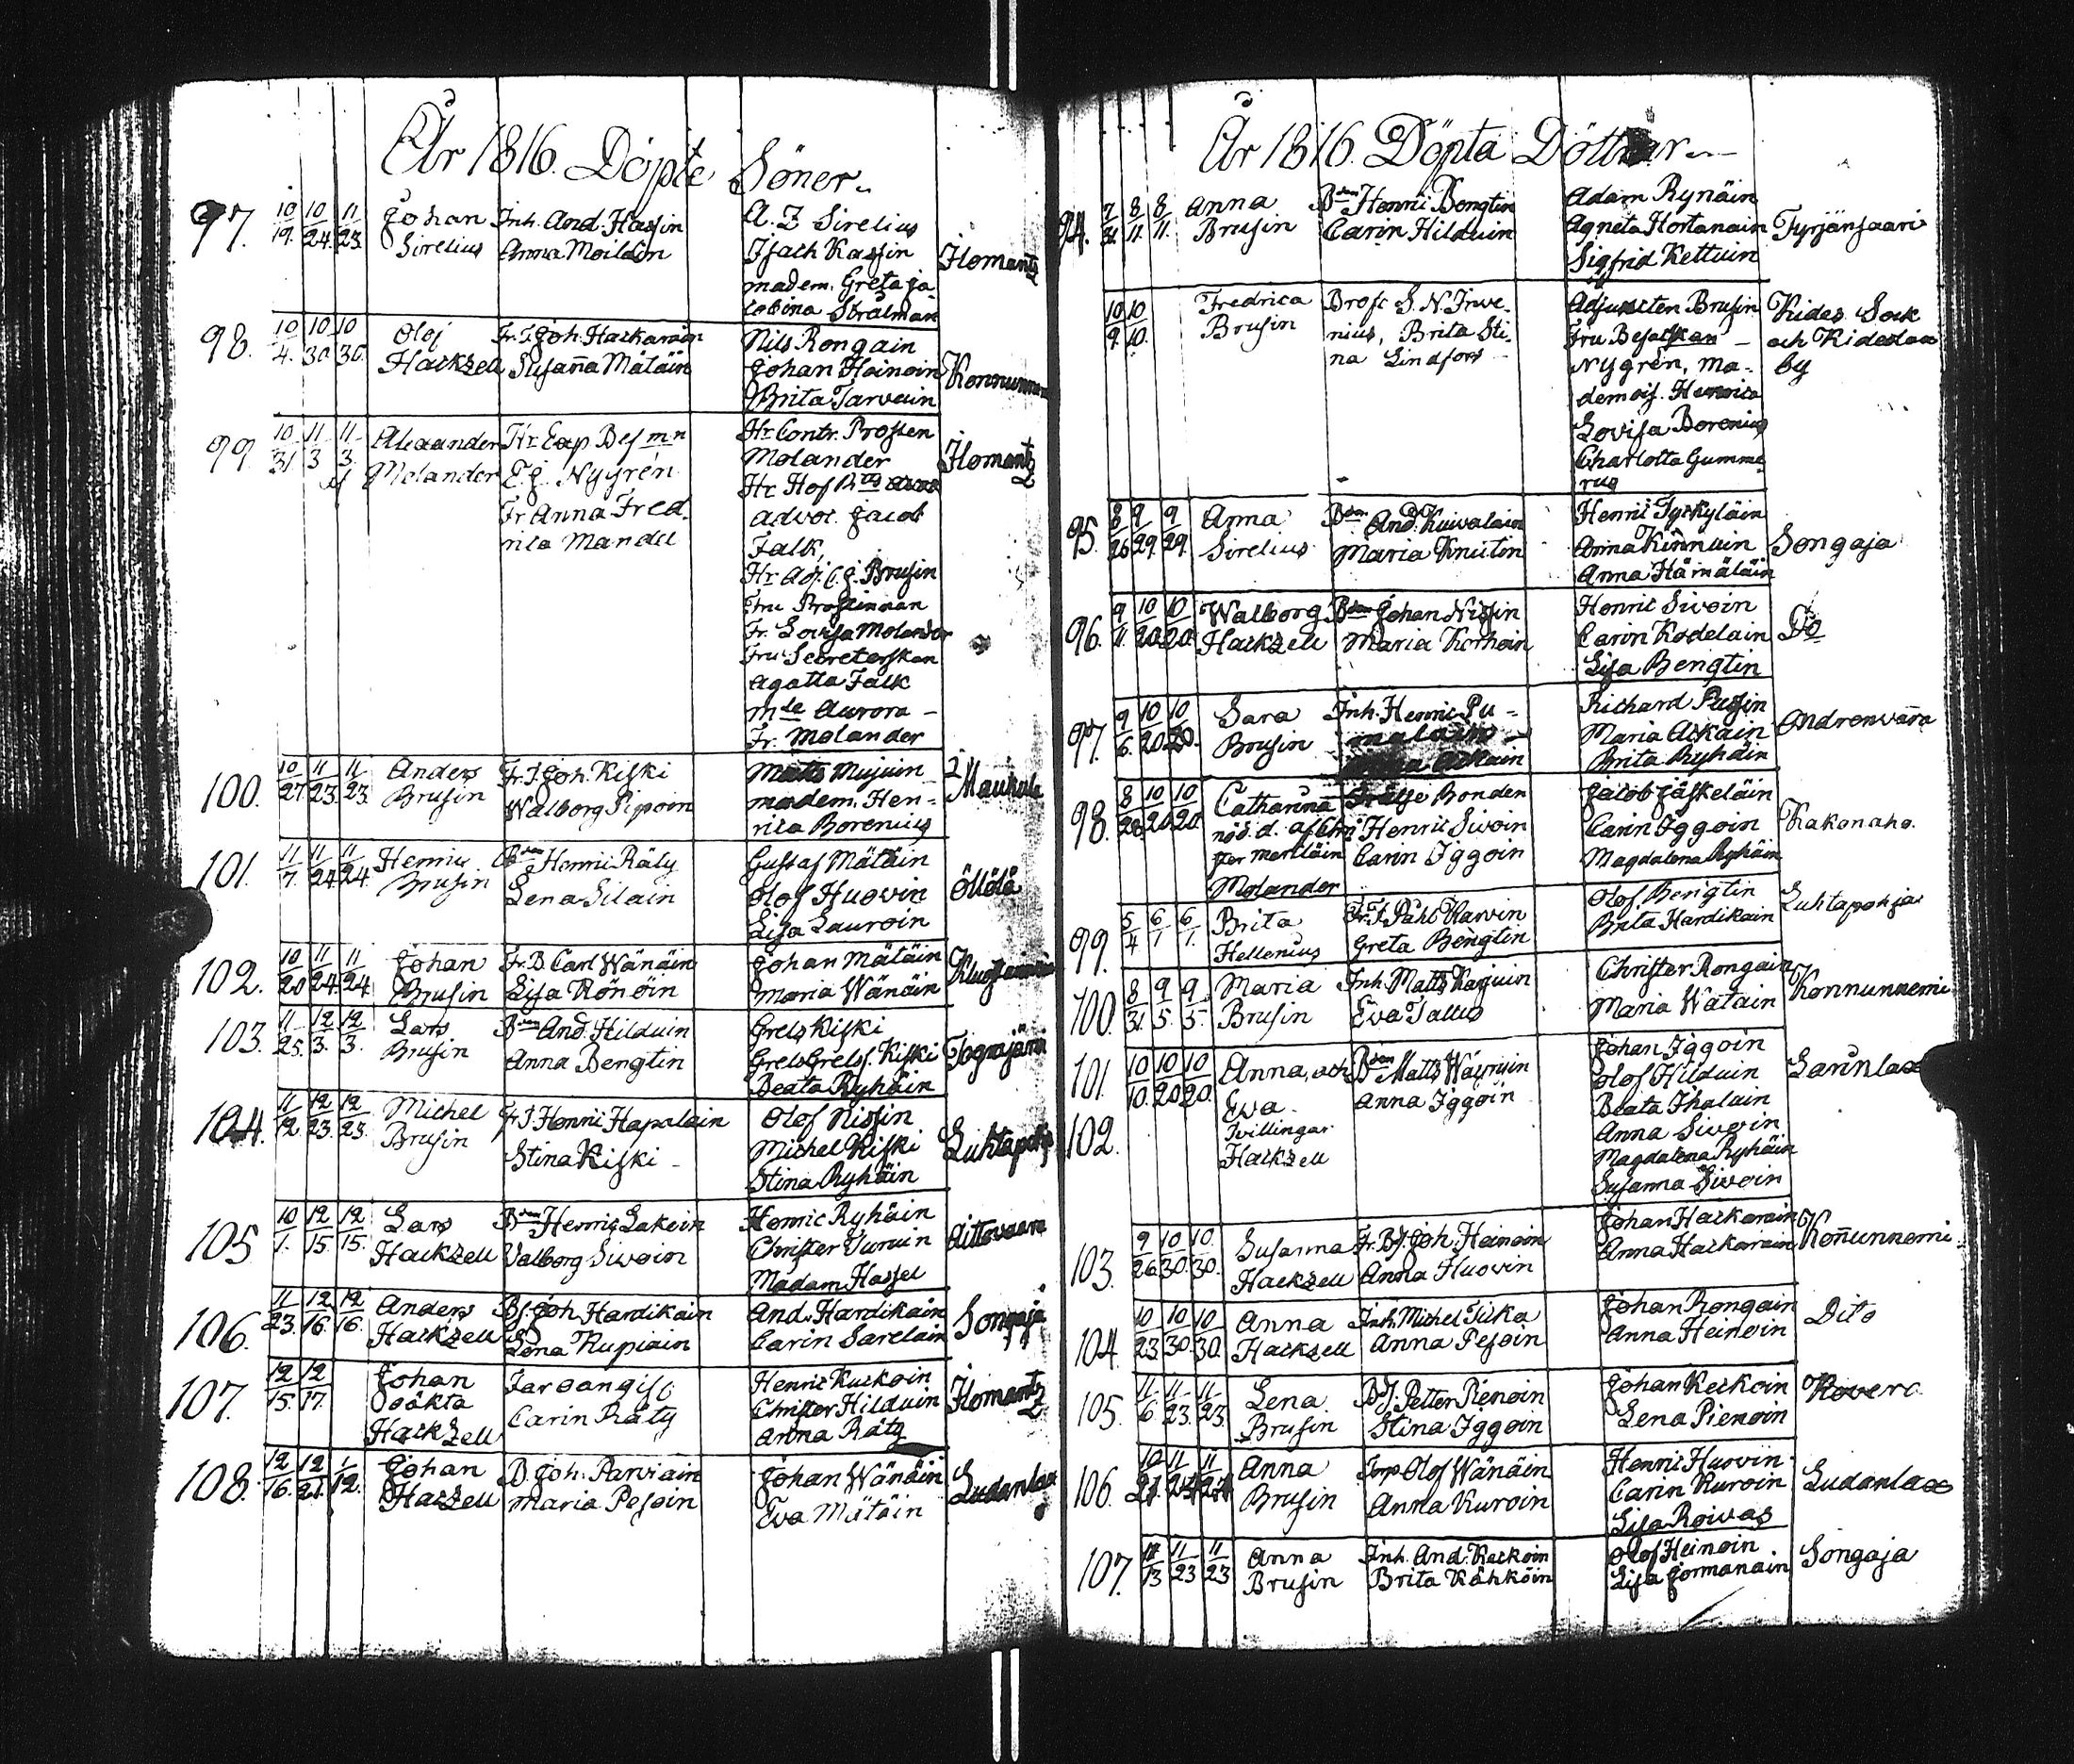 År 1816. Döpte Söner.
97. 10/19. 10/24. 11/23. Johan Inh. And. Hassin A. Z Sirelius
Sirelius Anna Moilain Isach Kassin Ilomantz
madem. Greta Ja
cobina Strålman
98. 10/4. 10/30. 10/30. Olof Fr. T. Joh. Harkarain Nils Rongain
Hackzell Susanna Mätäin Johan Heinoin
Brita Tarvain
99. 10/31 11/3 11/3 Alexander Hr Cap Bef mn Hr Contr. Prosten
Molander E. J. Nygrén Molander Ilomantz
Fr Anna Fred. Hr Hof R
rica Mandel Advoc. Jacob
Falk,
Hr Adj. C. J. Brusin
Fru Prostinnan
Fr. Lovisa Molander
Fru Secreterskan
Agatta Falk
Mlle Aurora
Fr. Molander
100. 10/27. 11/23. 11/23. Anders Fr. T. Joh. Kiski Matts Mujuin Maukula
Brusin Walborg Piipoin madem. Hen-
rica Borenius
101. 11/7. 11/24 11/24. Henric Bdn Henric Räty Gustaf Mätäin
Brusin Lena Silain Olof Huovin Öllölä
Lisa Lauroin
102. 10/20 11/24 11/24 Johan Fr. B. Carl Wänäin Johan Mätäin
Brusin Lisa Rönöin Maria Wänäin
103. 11/25. 12/3. 12/3. Lars Bdn And. Hilduin Grels Kiski
Brusin Anna Bengtin Grels Grelsf. Kiski
Beata Ryhäin
104. 11/12 12/23. 12/23. Michel Fr. T Henric Hapalain Olof Nissin
Brusin Stina Kiski Michel Kiski
Stina Ryhäin
105 10/1. 12/15. 12/15. Lars Bdn Henric Lakein Henric Ryhäin
Hackzell Valborg Siwoin Christer Turuin
Madam Hassel
106. 11/23. 12/16. 12/16. Anders Bs. Joh. Hardikain And. Hardikain Songaja
Hackzell Lena Kupiain Carin Sarelain
107. 12/15. 12/17. Johan Henric Kuckoin Ilomantz
oäkta Carin Räty Christer Hilduin
Hackzell Anna Räty
108. 12/16. 12/21. 1/12. Johan B. Joh. Parviain Johan Wänäin Ludanlax
Hackzell Maria Pesoin Eva Mätäin
År 1816. Döpta Döttrar
94. 7/31. 8/11. 8/11. Anna Bdn Henric Bengtin Adam Rynäin
Brusin Carin Hilduin Agneta Hortanain Tyrjänsaari
Sigfrid Kettuin
10/9. 10/10. Fredrica Brofc S. N. Irwe- Adjuncten Brusin Kides Sock
Brusin nius, Brita Sti- Fru Befalskan och Kideslax
na Lindfors Nygrén, Ma- by
demois. Henrica
Lovisa Borenius
Charlotta Gumme
rus
95. 8/26 9/29. 9/29. Anna Bdn And. Kuivalain Henric Tyrkyläin
Sirelius Maria Knutin Anna Kinnuin Songaja
Anna Hämäläin
96. 9/11. 10/20. 10/20. Walborg Bdn Johan Nissin Henric Siwoin Do
Hackzell Maria Korhoin Carin Kodelain
Lisa Bengtin
97. 9/6. 10/20. 10/20. Sara Inh. Henric Pu- Richard Pussin
Brusin malain Maria Askain
Askain Brita Ryhäin
98. 8/28. 10/20 10/20. Catharina Frälse Bonden Jacob Jäskeläin
Henric Siwoin Carin Iggoin Kakonaho.
Carin Iggoin Magdalena Ryhäin
Molander
99. 5/4 6/1 6/1. Brita Fr. T. Påhl Karvin Olof Bengtin Luhtapohja
Hellenius Greta Bengtin Brita Hardikain
100. 8/31. 9/5. 9/5. Maria Inh. Matts Karjuin Christer Rongain
Brusin Eva Tallus Maria Watain Konnunnemi
101. 10/10. 10/20 10/20. Anna, och Bdn Matts Wäyrnin Johan Iggoin
Ewa Anna Iggoin Olof Hilduin
102. Tvillingar Beata Ihalain
Hackzell Anna Siwoin
Magdalena Ryhäin
Susanna Siwoin
103. 9/26. 10/30. 10/30. Susanna Fr. Bs. Joh. Heinoin Johan Harkarain Konnunnemi
Hackzell Anna Huovin Anna Harkarain
104. 10/23. 10/30. 10/30. Anna Inh. Michel Tiika Johan Rongain Dito
Hackzell Anna Pesoin Anna Heinoin
105. 11/6. 11/23. 11/23 Lena Bs. Petter Pienoin Johan Keckoin Kovero
Brusin Stina Iggoin Lena Pienoin
106. 10/21. 11/24 11/24 Anna Torp Olof Wänäin Henric Huovin
Brusin Anna Kuroin Carin Kuroin Ludanlax
Lisa Roivas
107. 11/13 11/23 11/23 Anna Inh. And. Keckoin Olof Heinoin Songaja
Brusin Brita Kähköin Lisa Jormanain